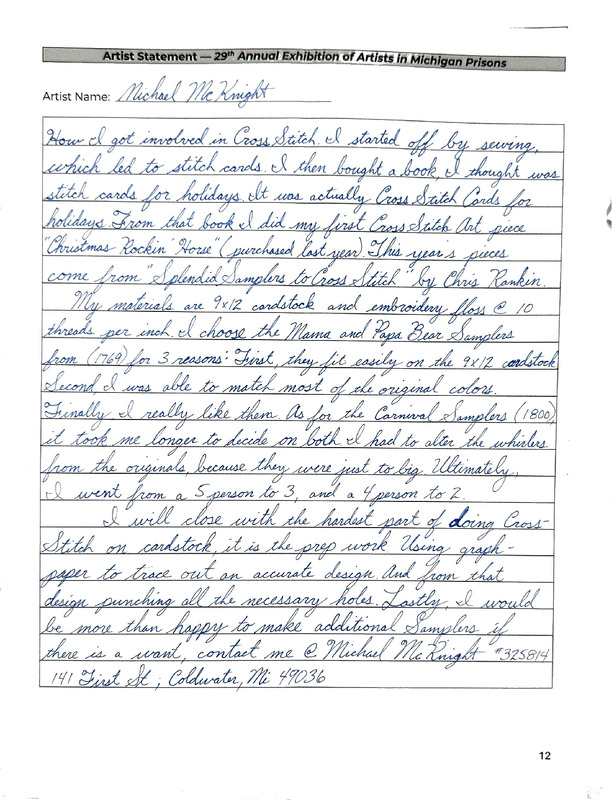 Artist Statement — 29th Annual Exhibition of Artists in Michigan Prisons
Artist Name: Michael McKnight
How I got involved in Cross Stitch. I started off by sewing,
which led to stitch cards. I then bought a book I thought was
stitch cards for holidays. It was actually Cross Stitch Cards for
holidays. From that book I did my first Cross Stitch Art piece
"Christmas Rockin' Horse" (purchased last year). This year's pieces
come from "Splendid Samplers to Cross Stitch" by Chris Rankin.
My materials are 9x12 cardstock and embroidery floss @ 10
threads per inch. I choose the Mama and Papa Bear Samplers
from (1769) for 3 reasons: First, they fit easily on the 9x12 cardstock
Second, I was able to match most of the original colors.
Finally I really like them. As for the Carnival Samplers (1800)
it took me longer to decide on both. I had to alter the whirlers
from the originals, because they were just to big. Ultimately,
I went from a 5 person to 3, and a 4 person to 2.
I will close with the hardest part of doing Cross-
Stitch on cardstock, it is the prep work. Using graph-
paper to trace out an accurate design. And from that
design punching all the necessary holes. Lastly, I would
be more than happy to make additional Samplers if
there is a want, contact me @ Michael McKnight #325814
141 First St ; Coldwater, Mi 49036
12